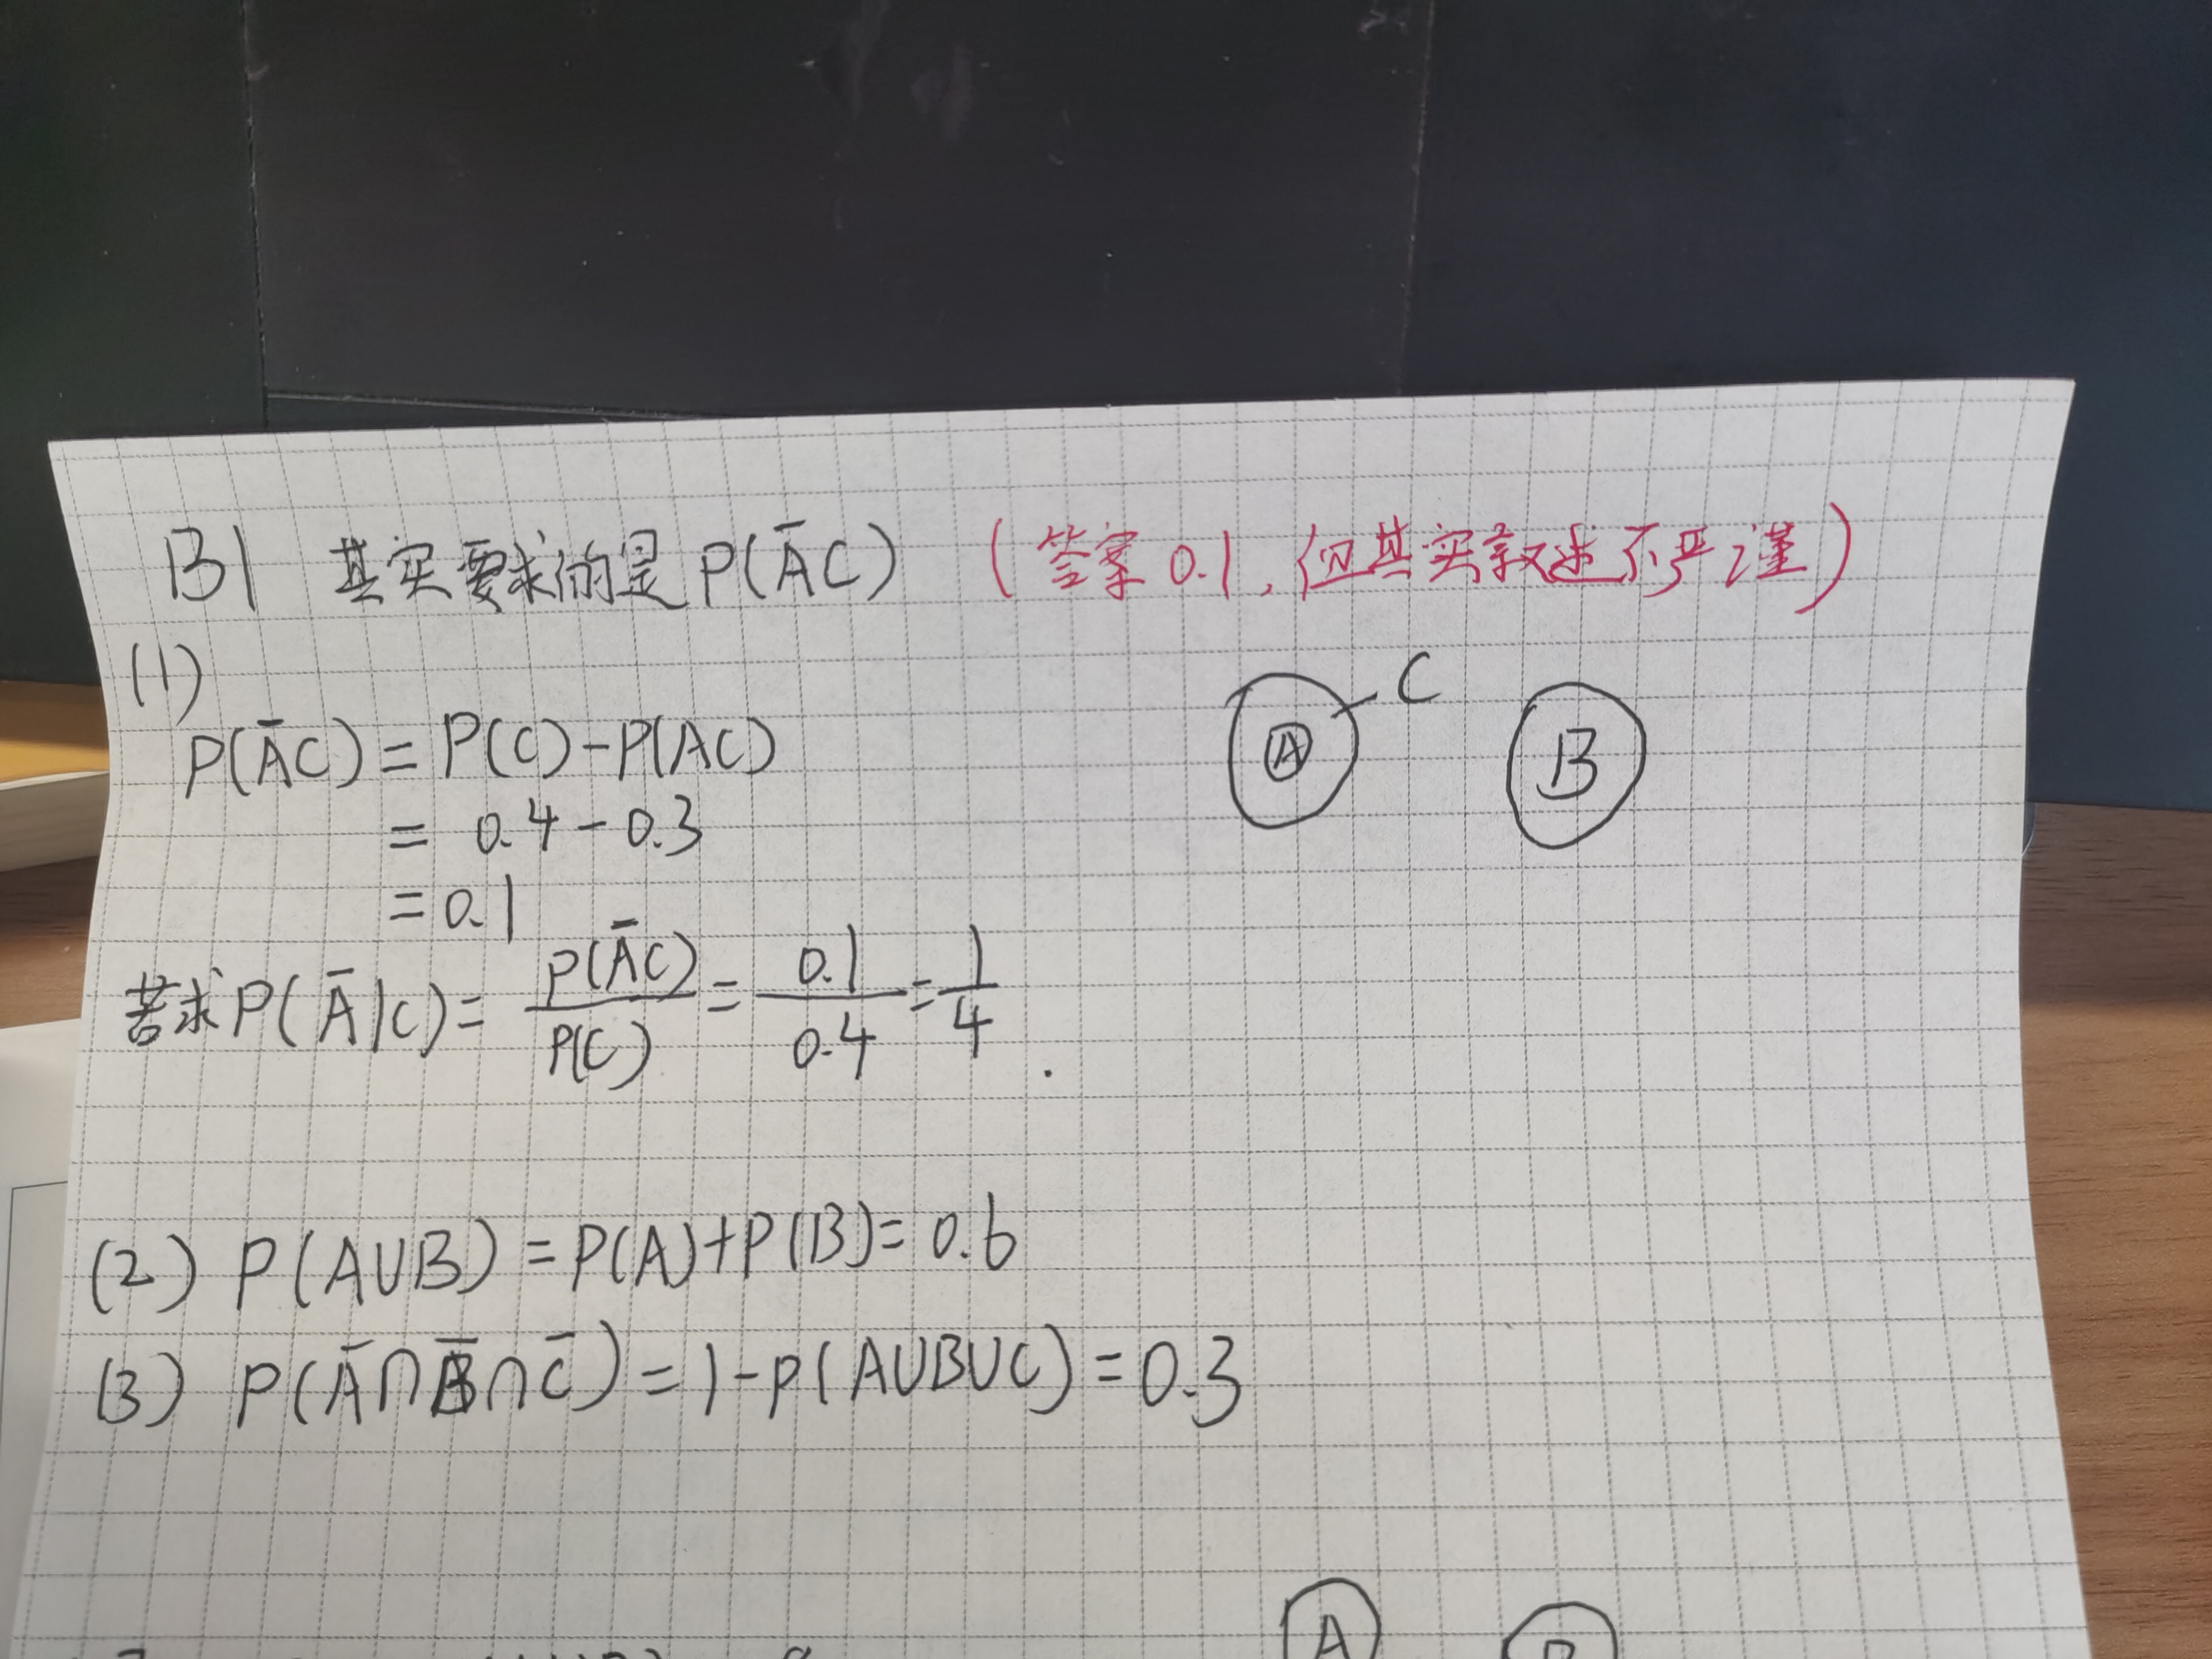 B1 其实要求的是P(ĀC) (答案0.1,但其实叙述不严谨)
(1)
C
A B
P(ĀC)=P(C)-P(AC)
= 0.4-0.3
=0.1
若求P(Ā|C)= P(ĀC)/P(C) = 0.1/0.4 = 1/4 .
(2) P(A∪B)=P(A)+P(B)=0.6
(3) P(Ā∩B̄∩C̄)=1-P(A∪B∪C)=0.3
A